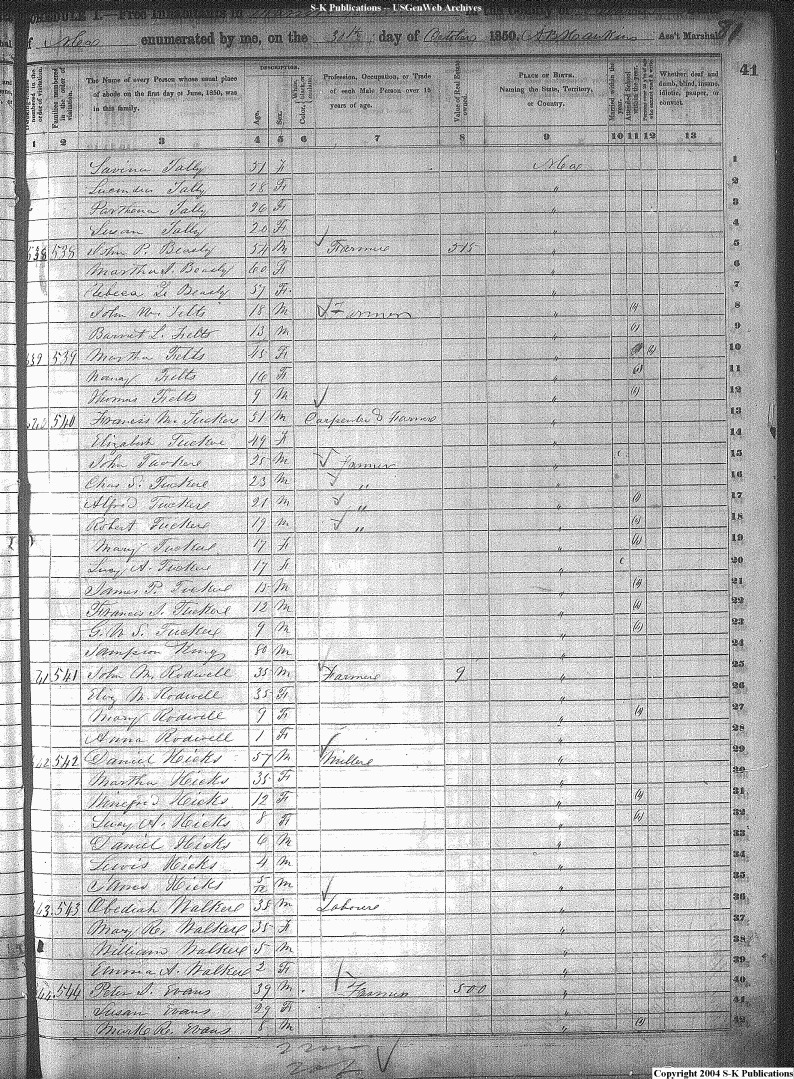 S-K Publications -- USGenWeb Archives
SCHEDULE I.—Free Inhabitants in
of enumerated by me, on the 30th day of October 1850. Ass't Marshal. 81
41
DESCRIPTION.
The Name of every Person whose usual place of abode on the first day of June, 1850, was in this family.
Families numbered in the order of visitation.
Age.
Sex.
Color,
Profession, Occupation, or Trade of each Male Person over 15 years of age.
Value of Real Estate owned.
PLACE OF BIRTH. Naming the State, Territory, or Country.
Married within the year.
Attended School within the year.
Whether deaf and dumb, blind, insane, idiotic, pauper, or convict.
1 2 3 4 5 6 7 8 9 10 11 12 13
Tally 31 F 1
Tally 28 F " 2
Parthena Tally 26 F " 3
Susan Tally 20 F " 4
538 538 John P. Beasly 54 M Farmer 515 " 5
Martha Beasly 60 F " 6
Beasly 57 F " 7
John W. Felts 18 M Farmer " 8
L. Felts 13 M " 9
539 539 Martha Felts 45 F " 10
Nancy Felts 16 F " 11
Thomas Felts 9 M " 12
540 Francis M. Tucker 51 M Carpenter & Farmer " 13
Elizabeth Tucker 49 F " 14
John Tucker 25 M Farmer " 15
Chas S. Tucker 23 M " " 16
Alfred Tucker 21 M " " 17
Robert Tucker 19 M " " 18
Mary Tucker 17 F " 19
Lucy A. Tucker 17 F " 20
James P. Tucker 15 M " 21
Francis J. Tucker 12 M " 22
Tucker 9 M " 23
Sampson King 80 M " 24
541 John M. Rodwell 35 M Farmer 9 " 25
Eliz M. Rodwell 35 F " 26
Mary Rodwell 9 F " 27
Anna Rodwell 1 F " 28
542 Daniel Hicks 57 M Miller " 29
Martha Hicks 35 F " 30
Winefred Hicks 12 F " 31
Lucy A. Hicks 8 F " 32
Daniel Hicks 6 M " 33
Lewis Hicks 4 M " 34
James Hicks 5/12 M " 35
543 Obediah Walker 35 M Laborer " 36
Mary Re. Walker 35 F " 37
William Walker 5 M " 38
Emma A. Walker 2 F " 39
544 Peter S. Evans 39 M Farmer 500 " 40
Susan Evans 29 F " 41
Evans 8 M " 42
Copyright 2004 S-K Publications